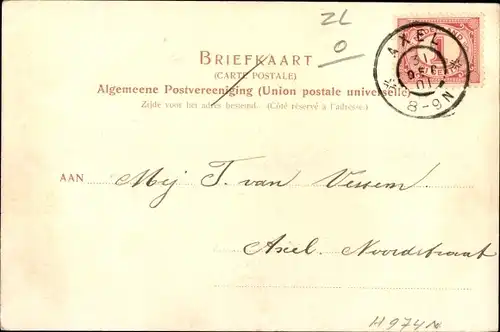 ZL
0
BRIEFKAART
(CARTE POSTALE)
Algemeene Postvereeniging (Union postale universelle)
Zijde voor het adres bestemd. (Côté réservé à l'adresse.)
AXEL
31
DEC
01
8-9N
AAN Mej T. van Vessem.
Axel. Noordstraat
H974N